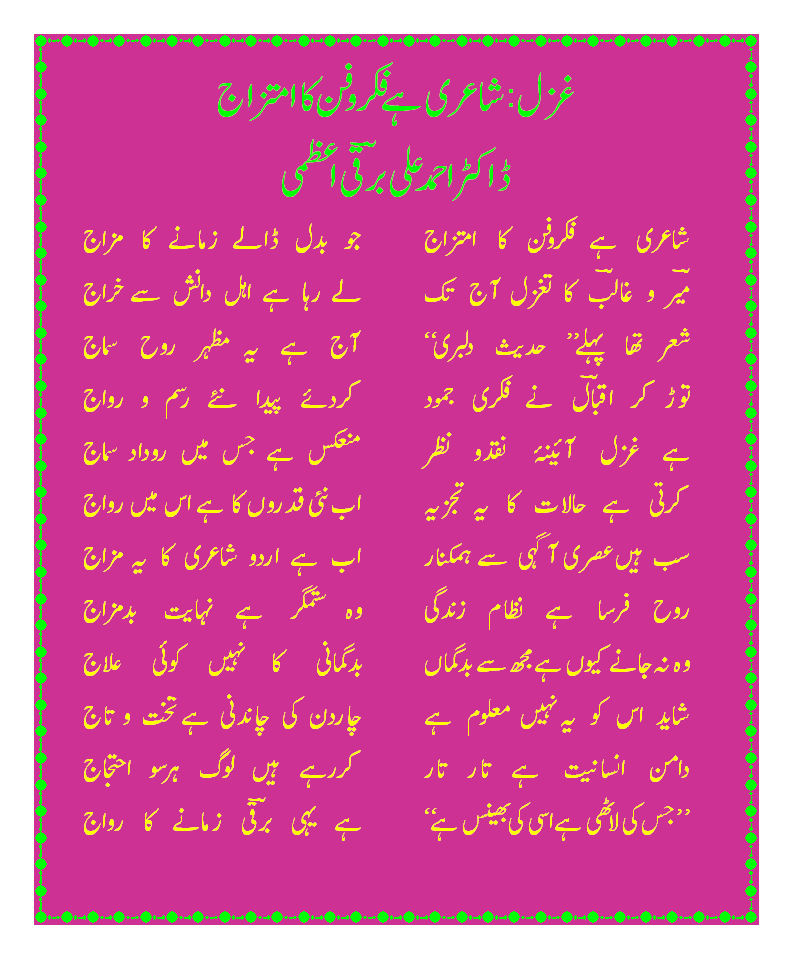 غزل : شاعری ہے فکر و فن کا امتزاج
ڈاکٹر احمد علی برقیؔ اعظمی
شاعری ہے فکروفن کا امتزاج جو بدل ڈالے زمانے کا مزاج
میرؔ و غالبؔ کا تغزل آج تک لے رہا ہے اہل دانش سے خراج
شعر تھا پہلے ’’ حدیث دلبری‘‘ آج ہے یہ مظہر روح سماج
توڑ کر اقبالؔ نے فکری جمود کردئے پیدا نئے رسم و رواج
ہے غزل آئینۂ نقدو نظر منعکس ہے جس میں روداد سماج
کرتی ہے حالات کا یہ تجزیہ اب نئی قدروں کا ہے اس میں رواج
سب ہیں عصری آگہی سے ہمکنار اب ہے اردو شاعری کا یہ مزاج
روح فرسا ہے نظام زندگی وہ ستمگر ہے نہایت بدمزاج
وہ نہ جانے کیوں ہے مجھ سے بدگماں بدگمانی کا نہیں کوئی علاج
شاید اس کو یہ نہیں معلوم ہے چاردن کی چاندنی ہے تخت و تاج
دامن انسانیت ہے تار تار کررہے ہیں لوگ ہرسو احتجاج
’’جس کی لاٹھی ہے اسی کی بھینس ہے‘‘ ہے یہی برقیؔ زمانے کا رواج